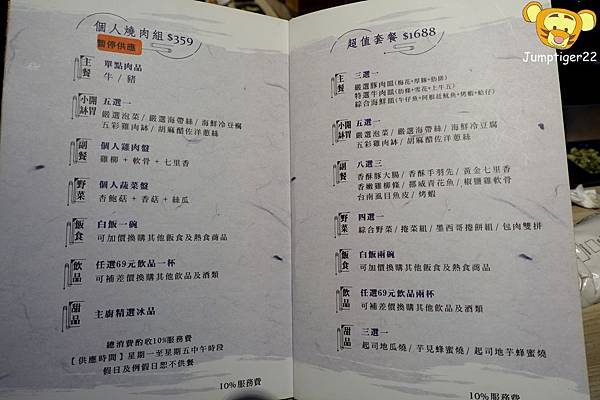 個人燒肉組 $359
暫停供應
主餐 單點肉品
牛 / 豬
開胃小缽 五選一
嚴選泡菜 / 嚴選海帶絲 / 海鮮冷豆腐
五彩雞肉缽 / 胡麻醋佐洋蔥絲
副餐 個人雞肉盤
雞柳 + 軟骨 + 七里香
野菜 個人蔬菜盤
杏鮑菇 + 香菇 + 絲瓜
飯食 白飯一碗
可加價換購其他飯食及熱食商品
飲品 任選69元飲品一杯
可補差價換購其他飲品及酒類
甜品 主廚精選冰品
總消費酌收10%服務費
【供應時間】星期一至星期五中午時段
假日及例假日恕不供餐
超值套餐 $1688
主餐 三選一
嚴選豚肉皿(梅花+厚豚+肋排)
特選牛肉皿(肋條+雪花+上牛五)
綜合海鮮皿(午仔魚+阿根廷魷魚+烤蝦+蛤仔)
開胃小缽 五選一
嚴選泡菜 / 嚴選海帶絲 / 海鮮冷豆腐
五彩雞肉缽 / 胡麻醋佐洋蔥絲
副餐 八選三
香酥豚大腸 / 香酥手羽先 / 黃金七里香
香嫩雞柳條 / 挪威青花魚 / 椒鹽雞軟骨
台南虱目魚皮 / 烤蝦
野菜 四選一
綜合野菜 / 捲菜組 / 墨西哥捲餅組 / 包肉雙拼
飯食 白飯兩碗
可加價換購其他飯食及熱食商品
飲品 任選69元飲品兩杯
可補差價換購其他飲品及酒類
甜品 三選一
起司地瓜燒 / 芋見蜂蜜燒 / 起司地芋蜂蜜燒
10%服務費
10%服務費
Jumptiger22